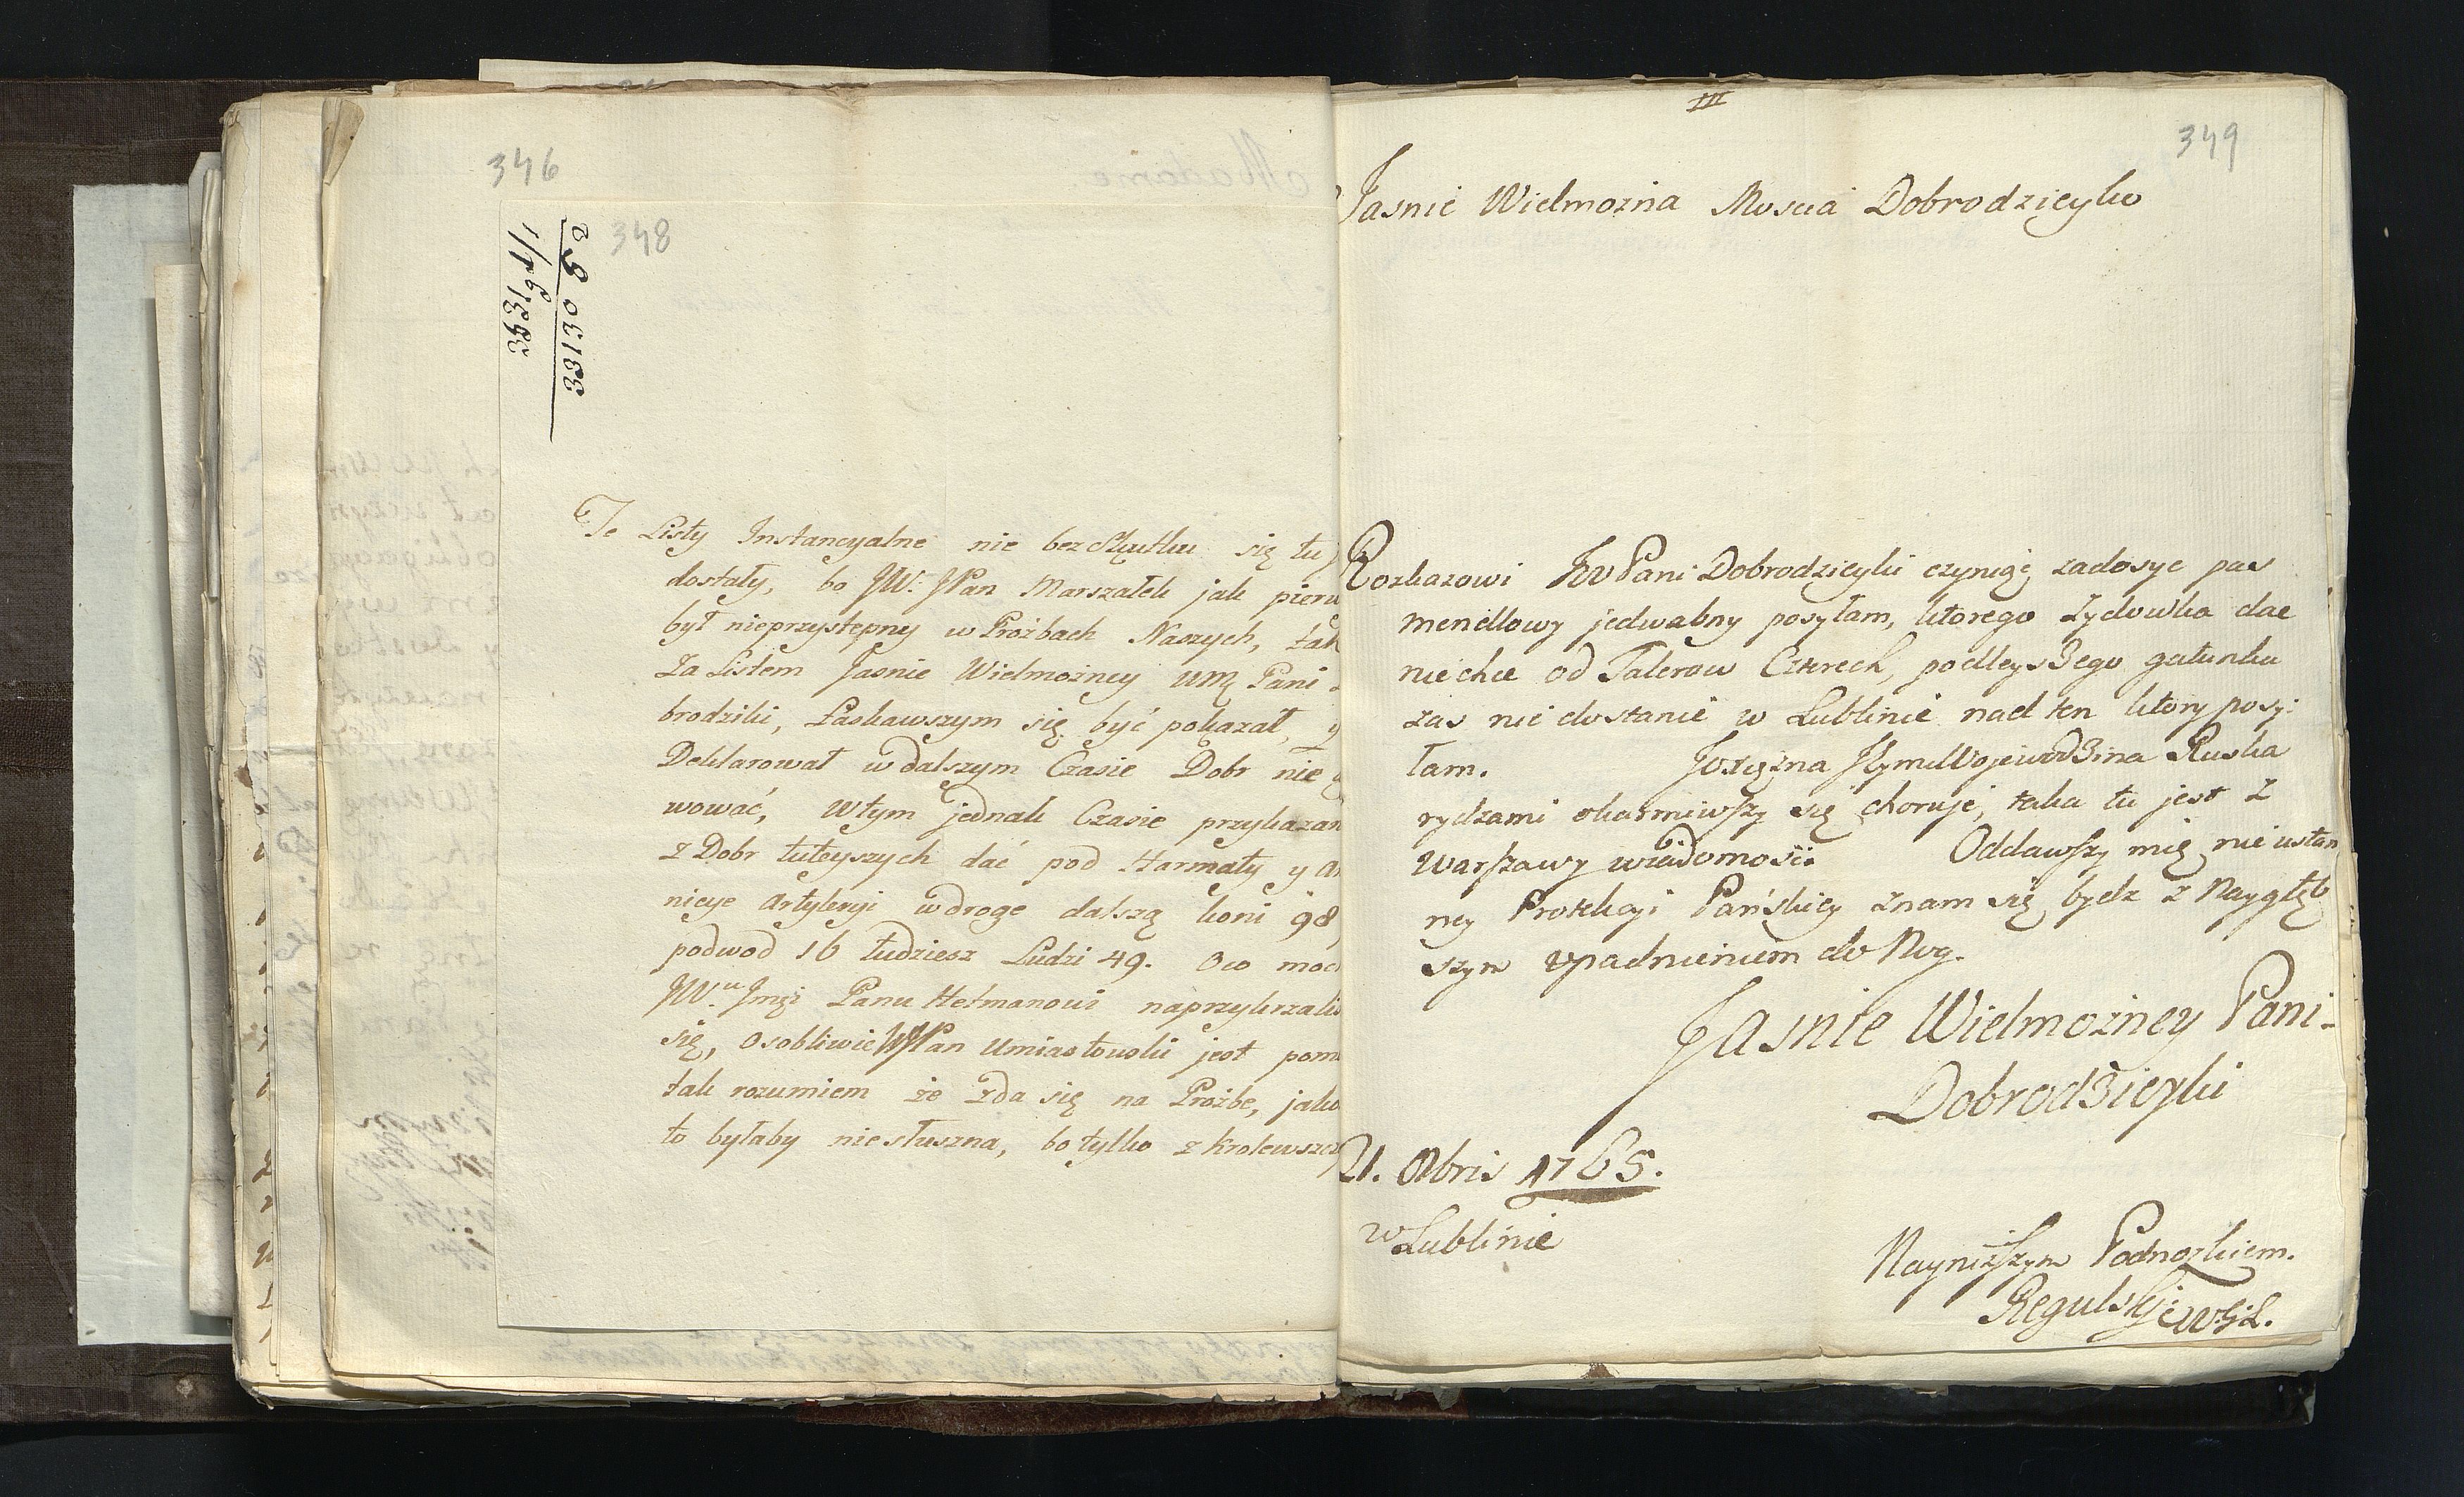 346
348
2
8
33130
1/19
3831
Te Listy Instancyalne nie bez Skutku się tu
dostały, bo JW. JPan Marszałek jak pierw
był nieprzystępny w Proźbach Naszych, tak
za Listem Jasnie Wielmozney WMę Pani
brodziki, Łaskawszym się być pokazał, y
Deklarował w dalszym Czasie Dobr nie
wować, w tym jednak Czasie przykazan
z Dobr tuteyszych dać pod Harmaty y a
nicye Artyleryi w droge dalszą koni 98,
podwod 16 tudziesz Ludzi 49. Oco moc
JW.u Jmęi Panu Hetmanowi naprzykrzali
się, osobliwie WJPan Umiastowski jest pom
tak rozumiem że zda się na Proźbe, jako
to byłaby niesłuszna, bo tylko z krolewszcz
III
349
Jasnie Wielmozna Moscia Dobrodzieyko
Rozkazowi JWPani Dobrodzieyki czynięę zadosyc pas
mendlowy jedwabny posyłam, ktorego Zydowka dac
niechce od Talerow Czterech, podleyszego gatunku
zas nie dostanie w Lublinie nad ten ktory posy:
łam. Xsięzna Jmc Wojewodzina Ruska
rydzami okarmiwszy się choruje, taka tu jest z
Warszawy wiadomość. Oddawszy mię nieustan
ney Protekcyi Pańskiey znam się bydz z Naygłęb
szym upadnieniem do Nog.
Jasnie Wielmozney Pani
Dobrodzieyki
21. Obris 1765.
w Lublinie
Nayniższym Podnozkiem.
Regulski